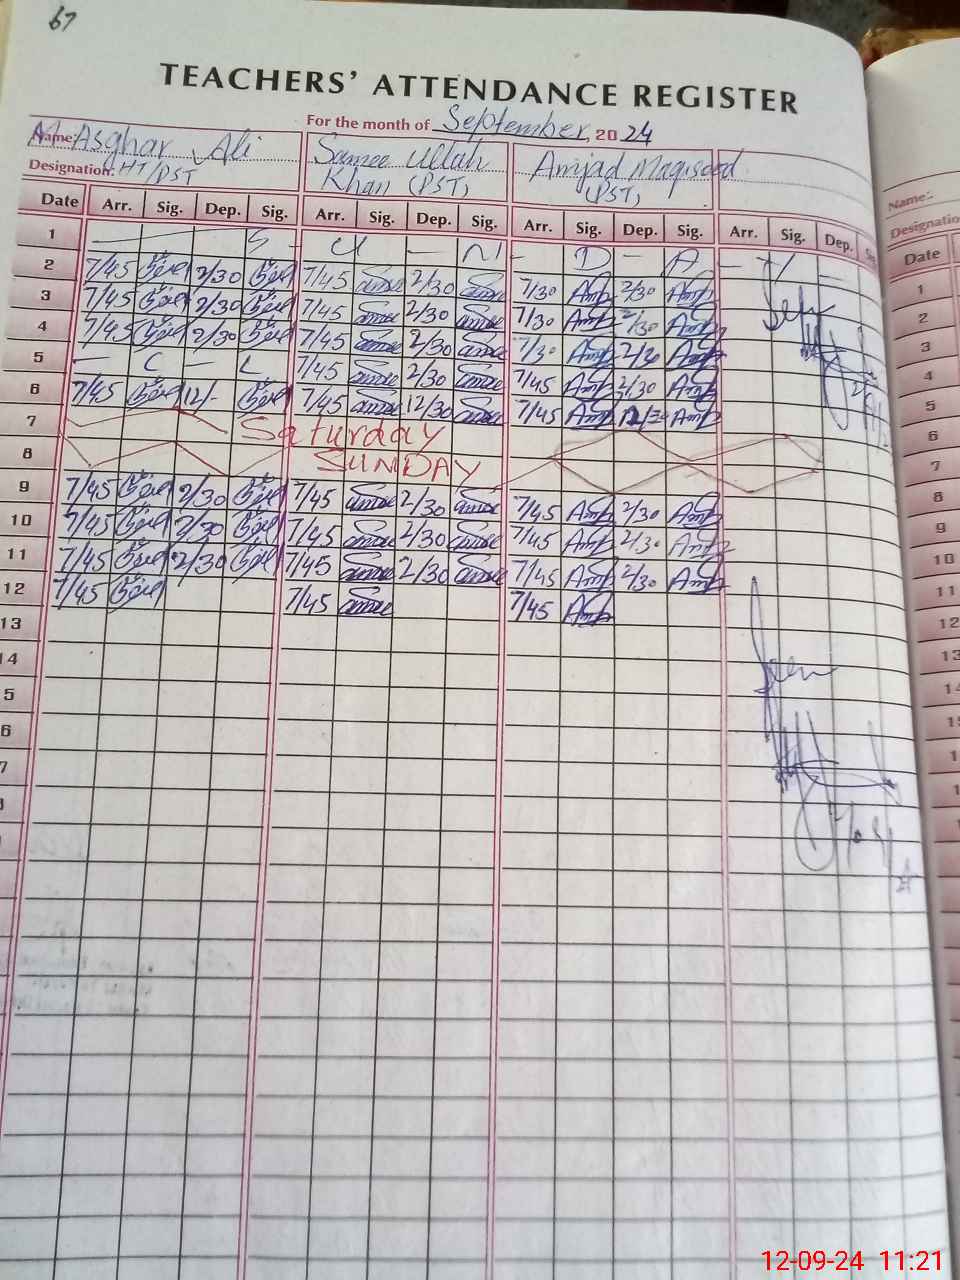 67
TEACHERS' ATTENDANCE REGISTER
For the month of September 2024
Name: M. Asghar Ali
Samee Ullah Khan (PST)
Amjad Maqsood (PST)
Designation: HT/PST
Date Arr. Sig. Dep. Sig. Arr. Sig. Dep. Sig. Arr. Sig. Dep. Sig. Arr. Sig. Dep. Sig.
1 — S - U - N - D - A - Y -
2 7/45 2/30 7/45 2/30 7/30 Amj 2/30 Amj
3 7/45 2/30 7/45 2/30 7/30 Amj 2/30 Amj
4 7/45 2/30 7/45 2/30 7/30 Amj 2/30 Amj
5 — C — L 7/45 2/30 7/45 Amj 2/30 Amj
6 7/45 12/- 7/45 12/30 7/45 Amj 12/30 Amj
7 Saturday
8 SUNDAY
9 7/45 2/30 7/45 2/30 7/45 Amj 2/30 Amj
10 7/45 2/30 7/45 2/30 7/45 Amj 2/30 Amj
11 7/45 2/30 7/45 2/30 7/45 Amj 2/30 Amj
12 7/45 7/45 7/45 Amj
13
14
5
6
7
Seen
Name:
Designatio
Date
1
2
3
4
5
6
7
8
9
10
11
12
13
14
12-09-24 11:21